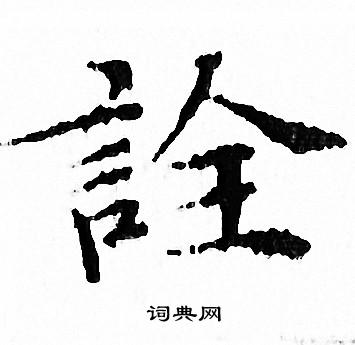 詮
词典网